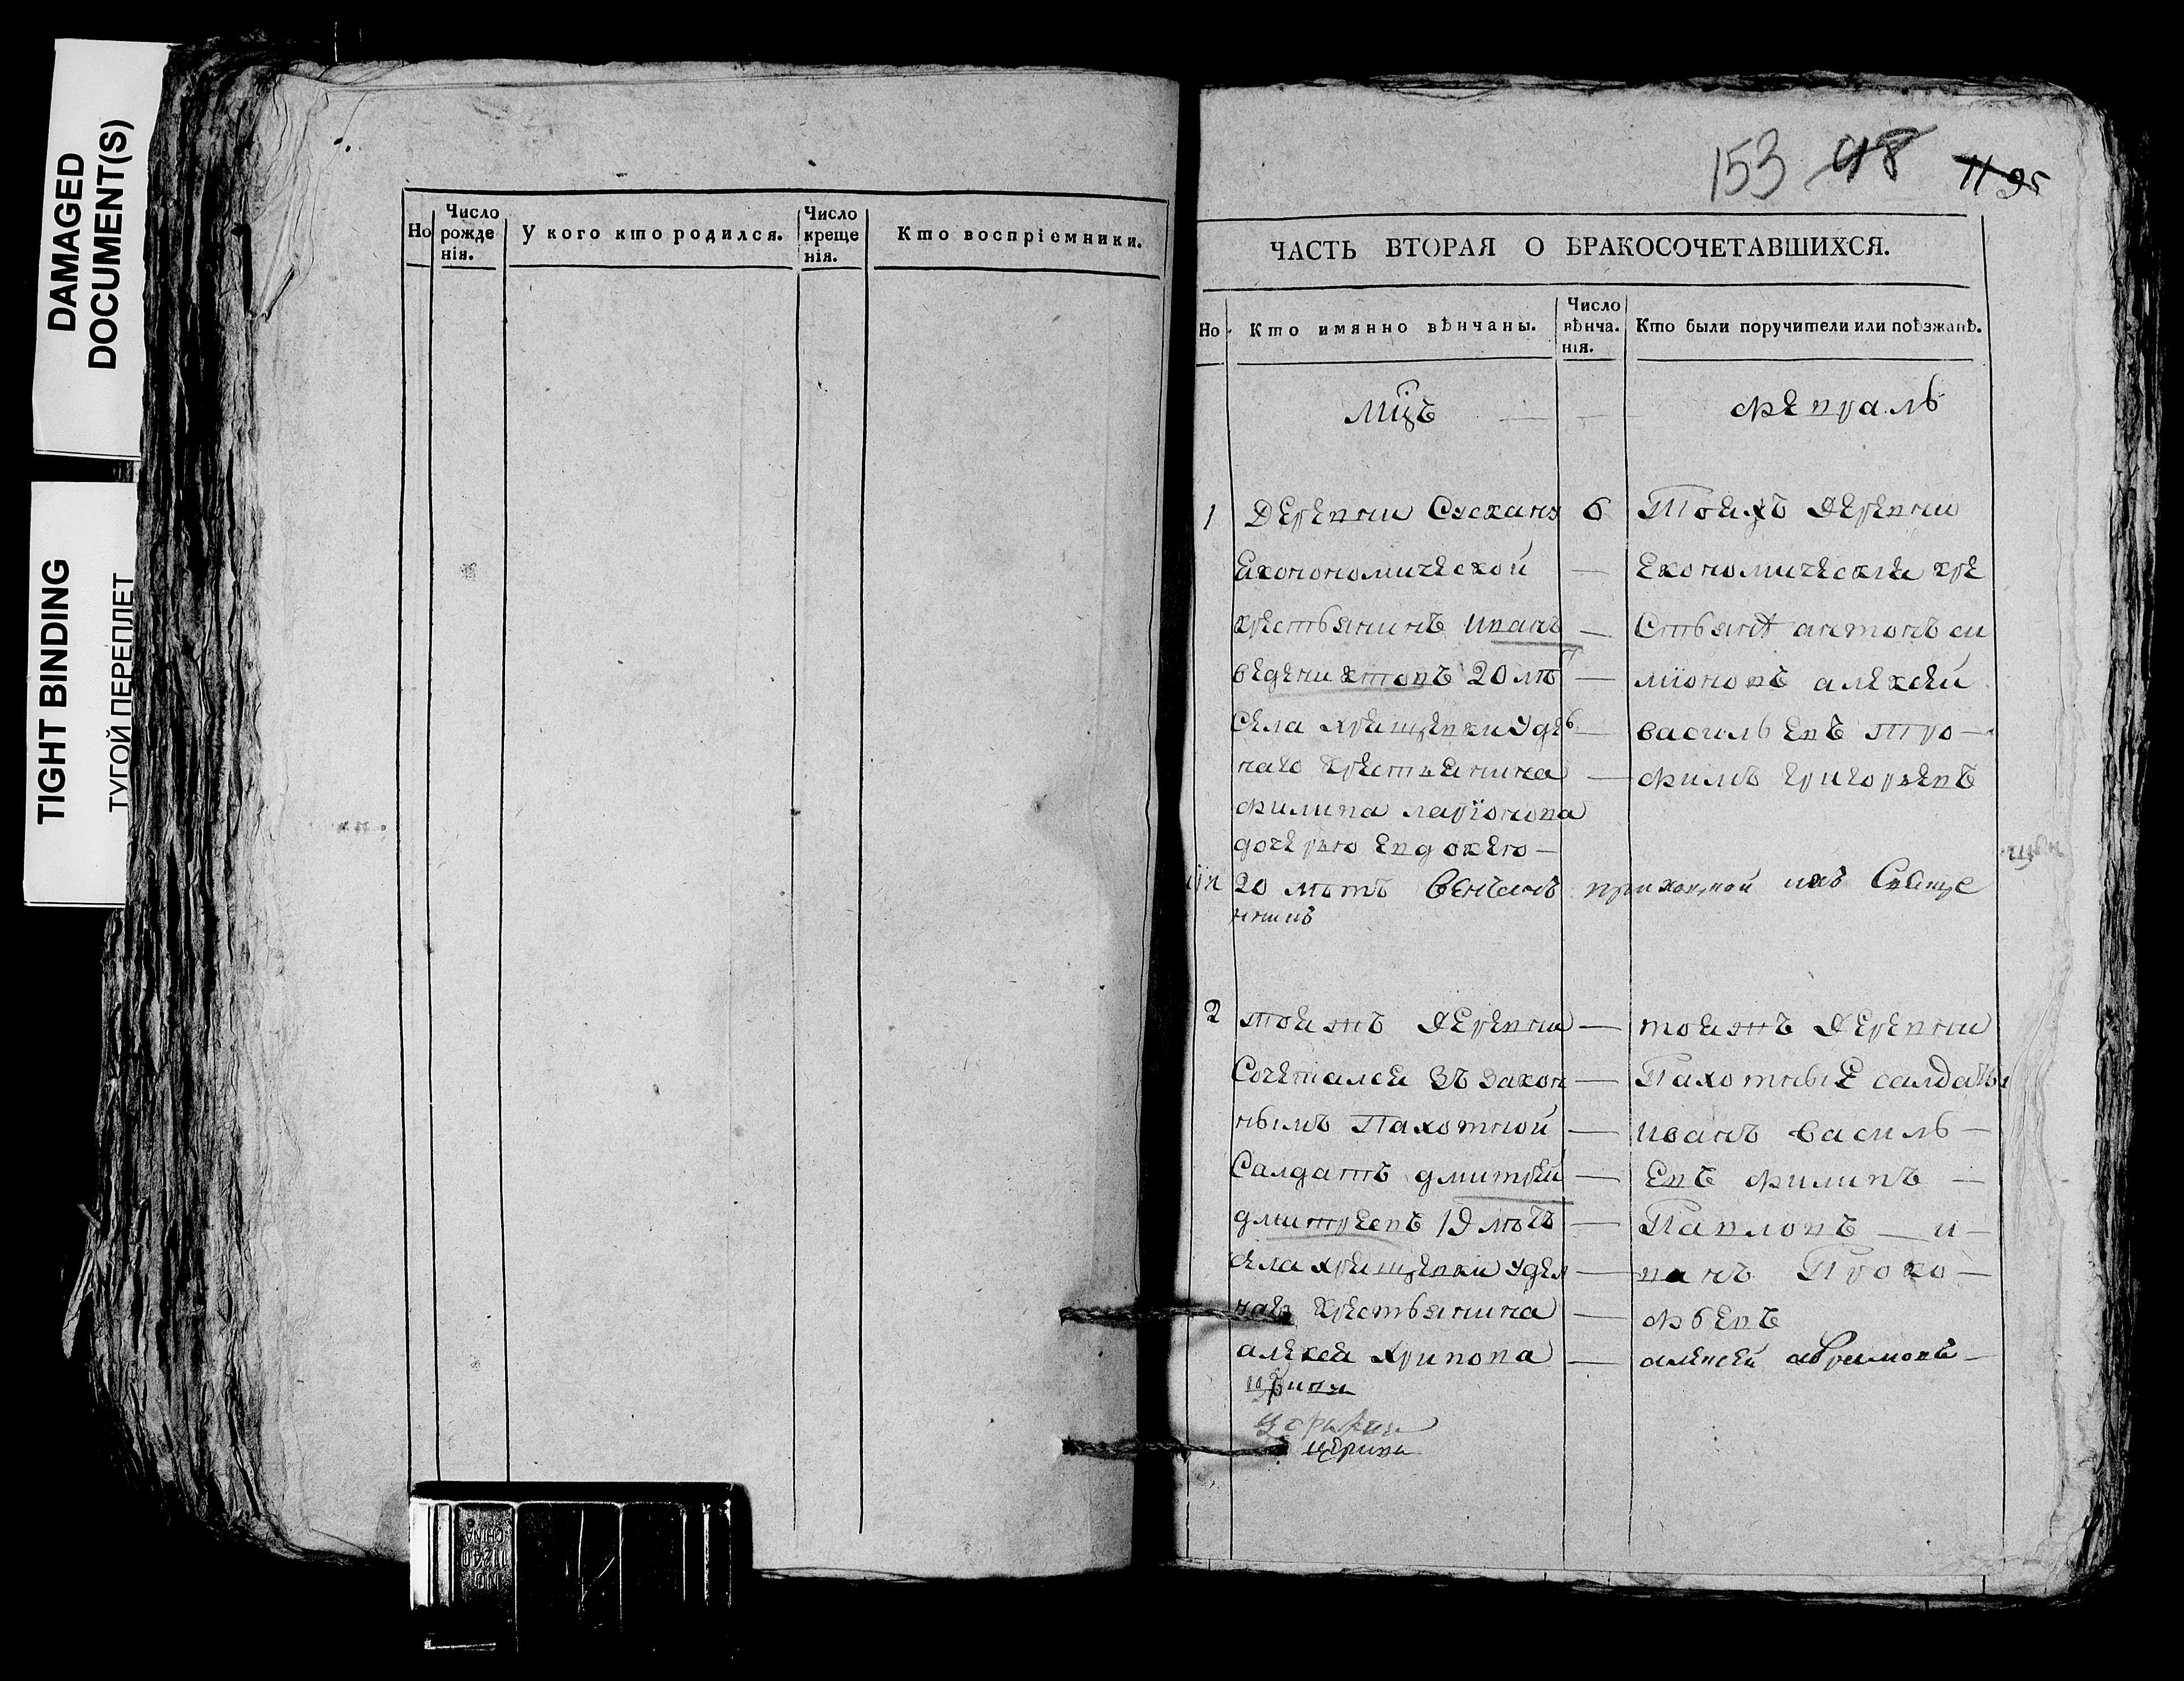 DAMAGED
DOCUMENT(S)
TIGHT BINDING
ТУГОЙ ПЕРЕПЛЕТ
Но
Число рожденія.
У кого кто родился.
Число крещенія.
Кто воспріемники.
153 98 11 95
ЧАСТЬ ВТОРАЯ О БРАКОСОЧЕТАВШИХСЯ.
Но
Кто имянно вѣнчаны.
Число вѣнчанія.
Кто были поручители или поѣзжанѣ.
мцъ февраль
1
деревни
еконономической
крестьянинъ иванъ
20 лѣ
села хрищевки удѣ
наго крестьянина
филипа ларїонова
дочерью евдокею
20 лѣтъ венчанъ приходной ихъ свяще
ннинъ
6
тоежъ деревни
економические кре
стьяня антонъ си
мїоновъ алексей
васильевъ тро
фимъ григорьевъ
2
тоежъ деревни
сочетался зъ закон
нымъ пахотной
салдатъ дмитрей
дмитреевъ 19 лѣтъ
села хрищевки удел
наго крестьянина
алексея
тоежъ деревни
пахотные салдаты
иванъ василь
евъ филипъ
павловъ и
ванъ проко
фьевъ
алексей
NO
11240
CHINA